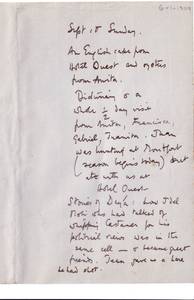 Sept 15 Sunday.
An English cake from
Hotel Ouest and oysters
from Anita.
Dictionary &
whole ½ day visit
from Anita, Francisco,
Gabriel, Juanita. Juan
was hunting at Montfort
(season begins today) but
ate with us at
Hotel Ouest
Stories of : how
who had talked of
for his
political views was in the
same cell — & became great
friends. Juan gave us a hare
he had shot.